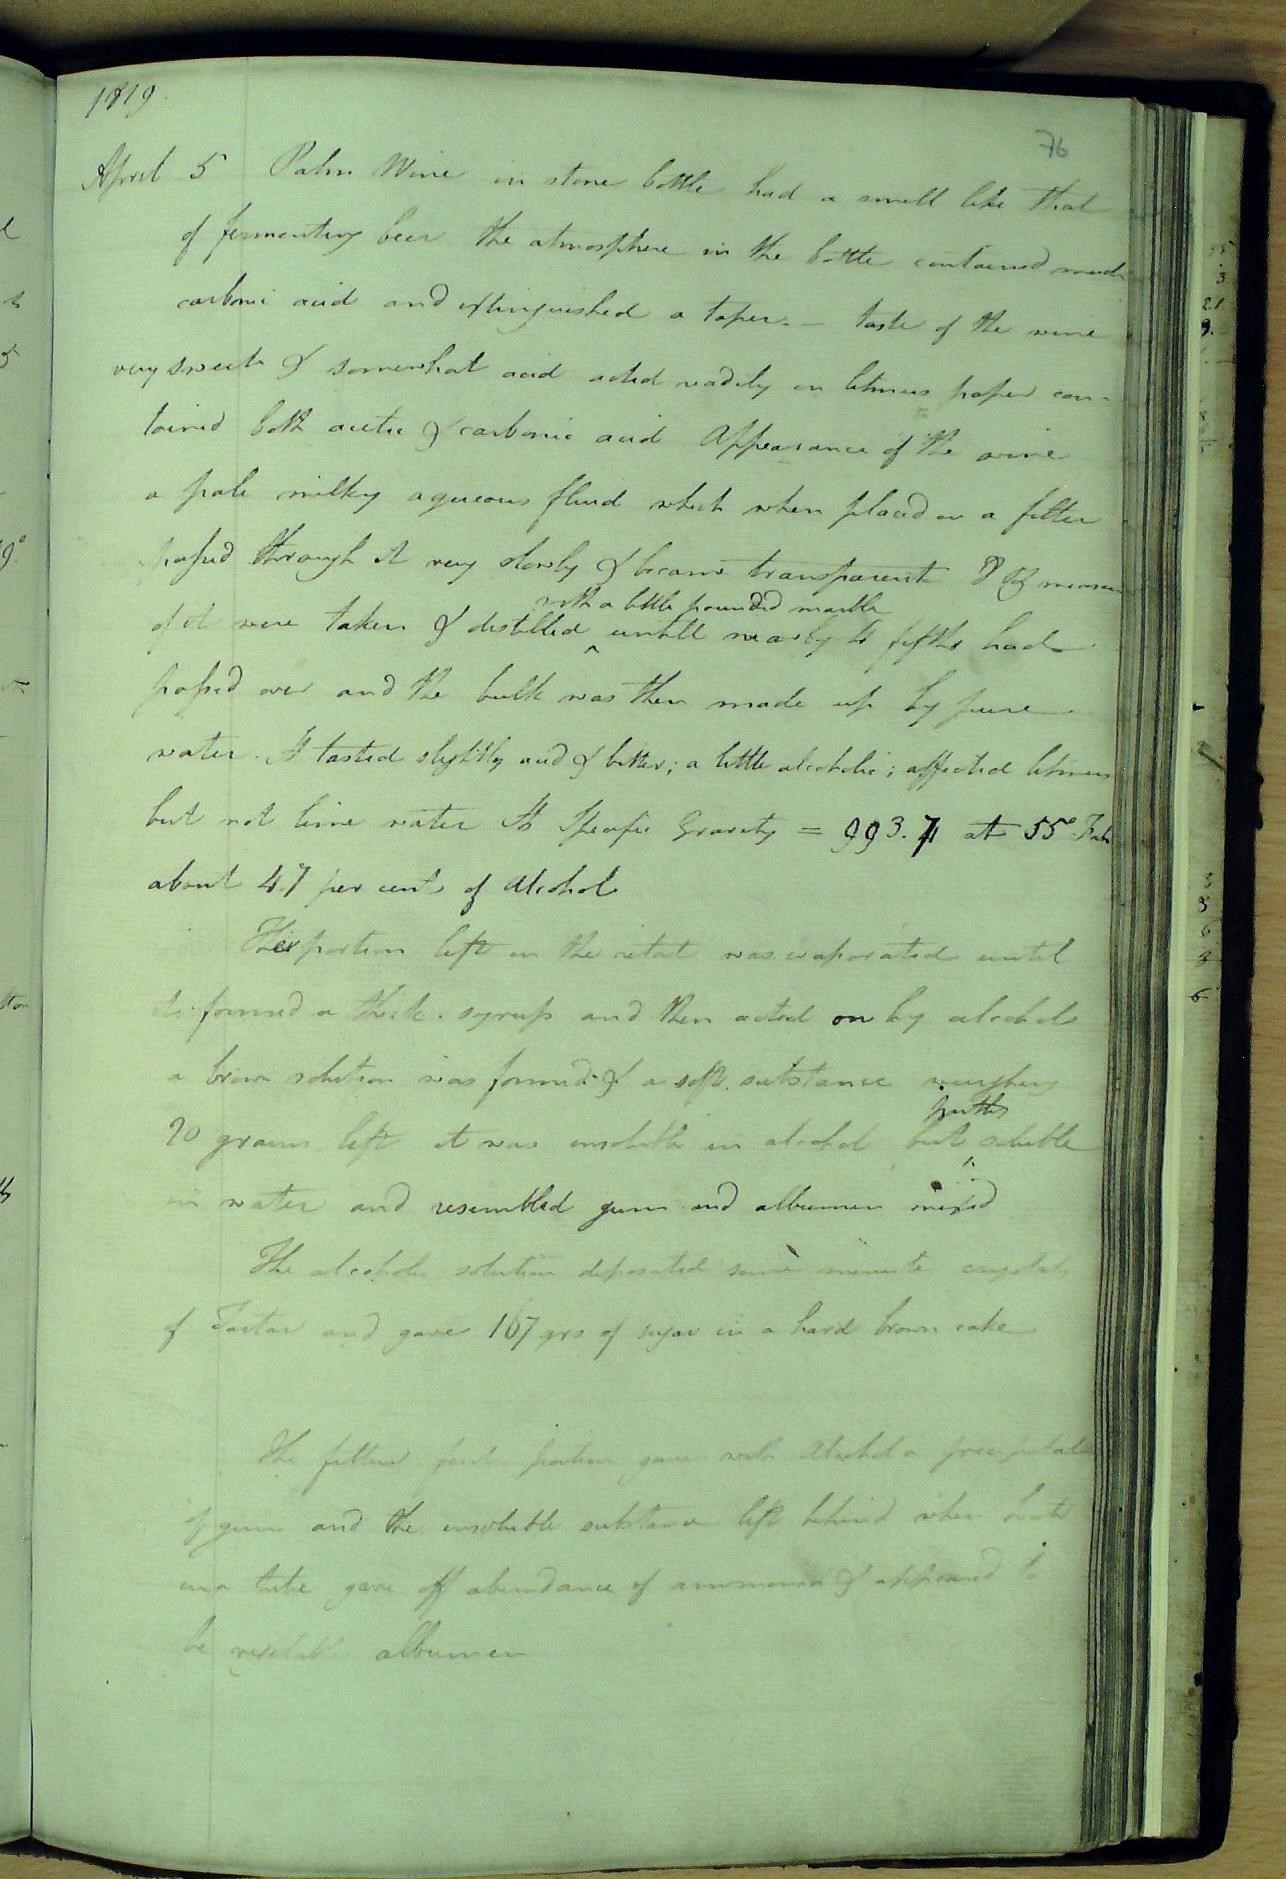 1819
76
April 5 Palm Wine in stone bottle had a smell like that
of fermenting beer the atmosphere in the bottle contained much
carbonic acid and extinguished a taper. — taste of the wine
very sweet & somewhat acid acted readily on litmus paper con-
tained both acetic & carbonic acid Appearance of the wine
a pale milky aqueous fluid which when placed on a filter
passed through it very slowly & became transparent 8 ℥ measure
with a little pounded marble
of it were taken & distilled ^ untill nearly 4 fifths had
passed over and the bulk was then made up by pure
water. It tasted slightly acid & bitter; a little alcoholic; affected litmus
but not lime water Its Specific Gravity = 993.4 at 55° Fah
about 4.7 per cent of Alcohol
The portion left in the retort was evaporated until
it formed a thick syrup and then acted on by alcohol
a brown solution was formed & a soft substance weighing
partly
20 grains left it was insoluble in alcohol but ^ soluble
in water and resembled gum and albumen mixed
The alcoholic solution deposited some minute crystals
of Tartar and gave 167 grs of sugar in a hard brown cake
The filtered portion gave with Alcohol a precipitate
of gum and the insoluble substance left behind when heated
in a tube gave off abundance of ammonia & appeared to
be vegetable albumen